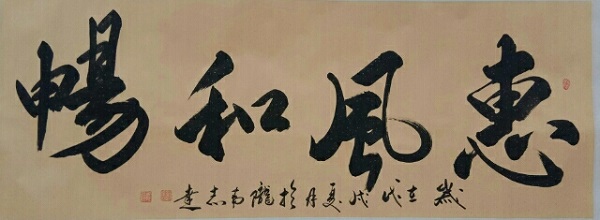 惠風和暢
歲在戊戌夏月於隴南志達